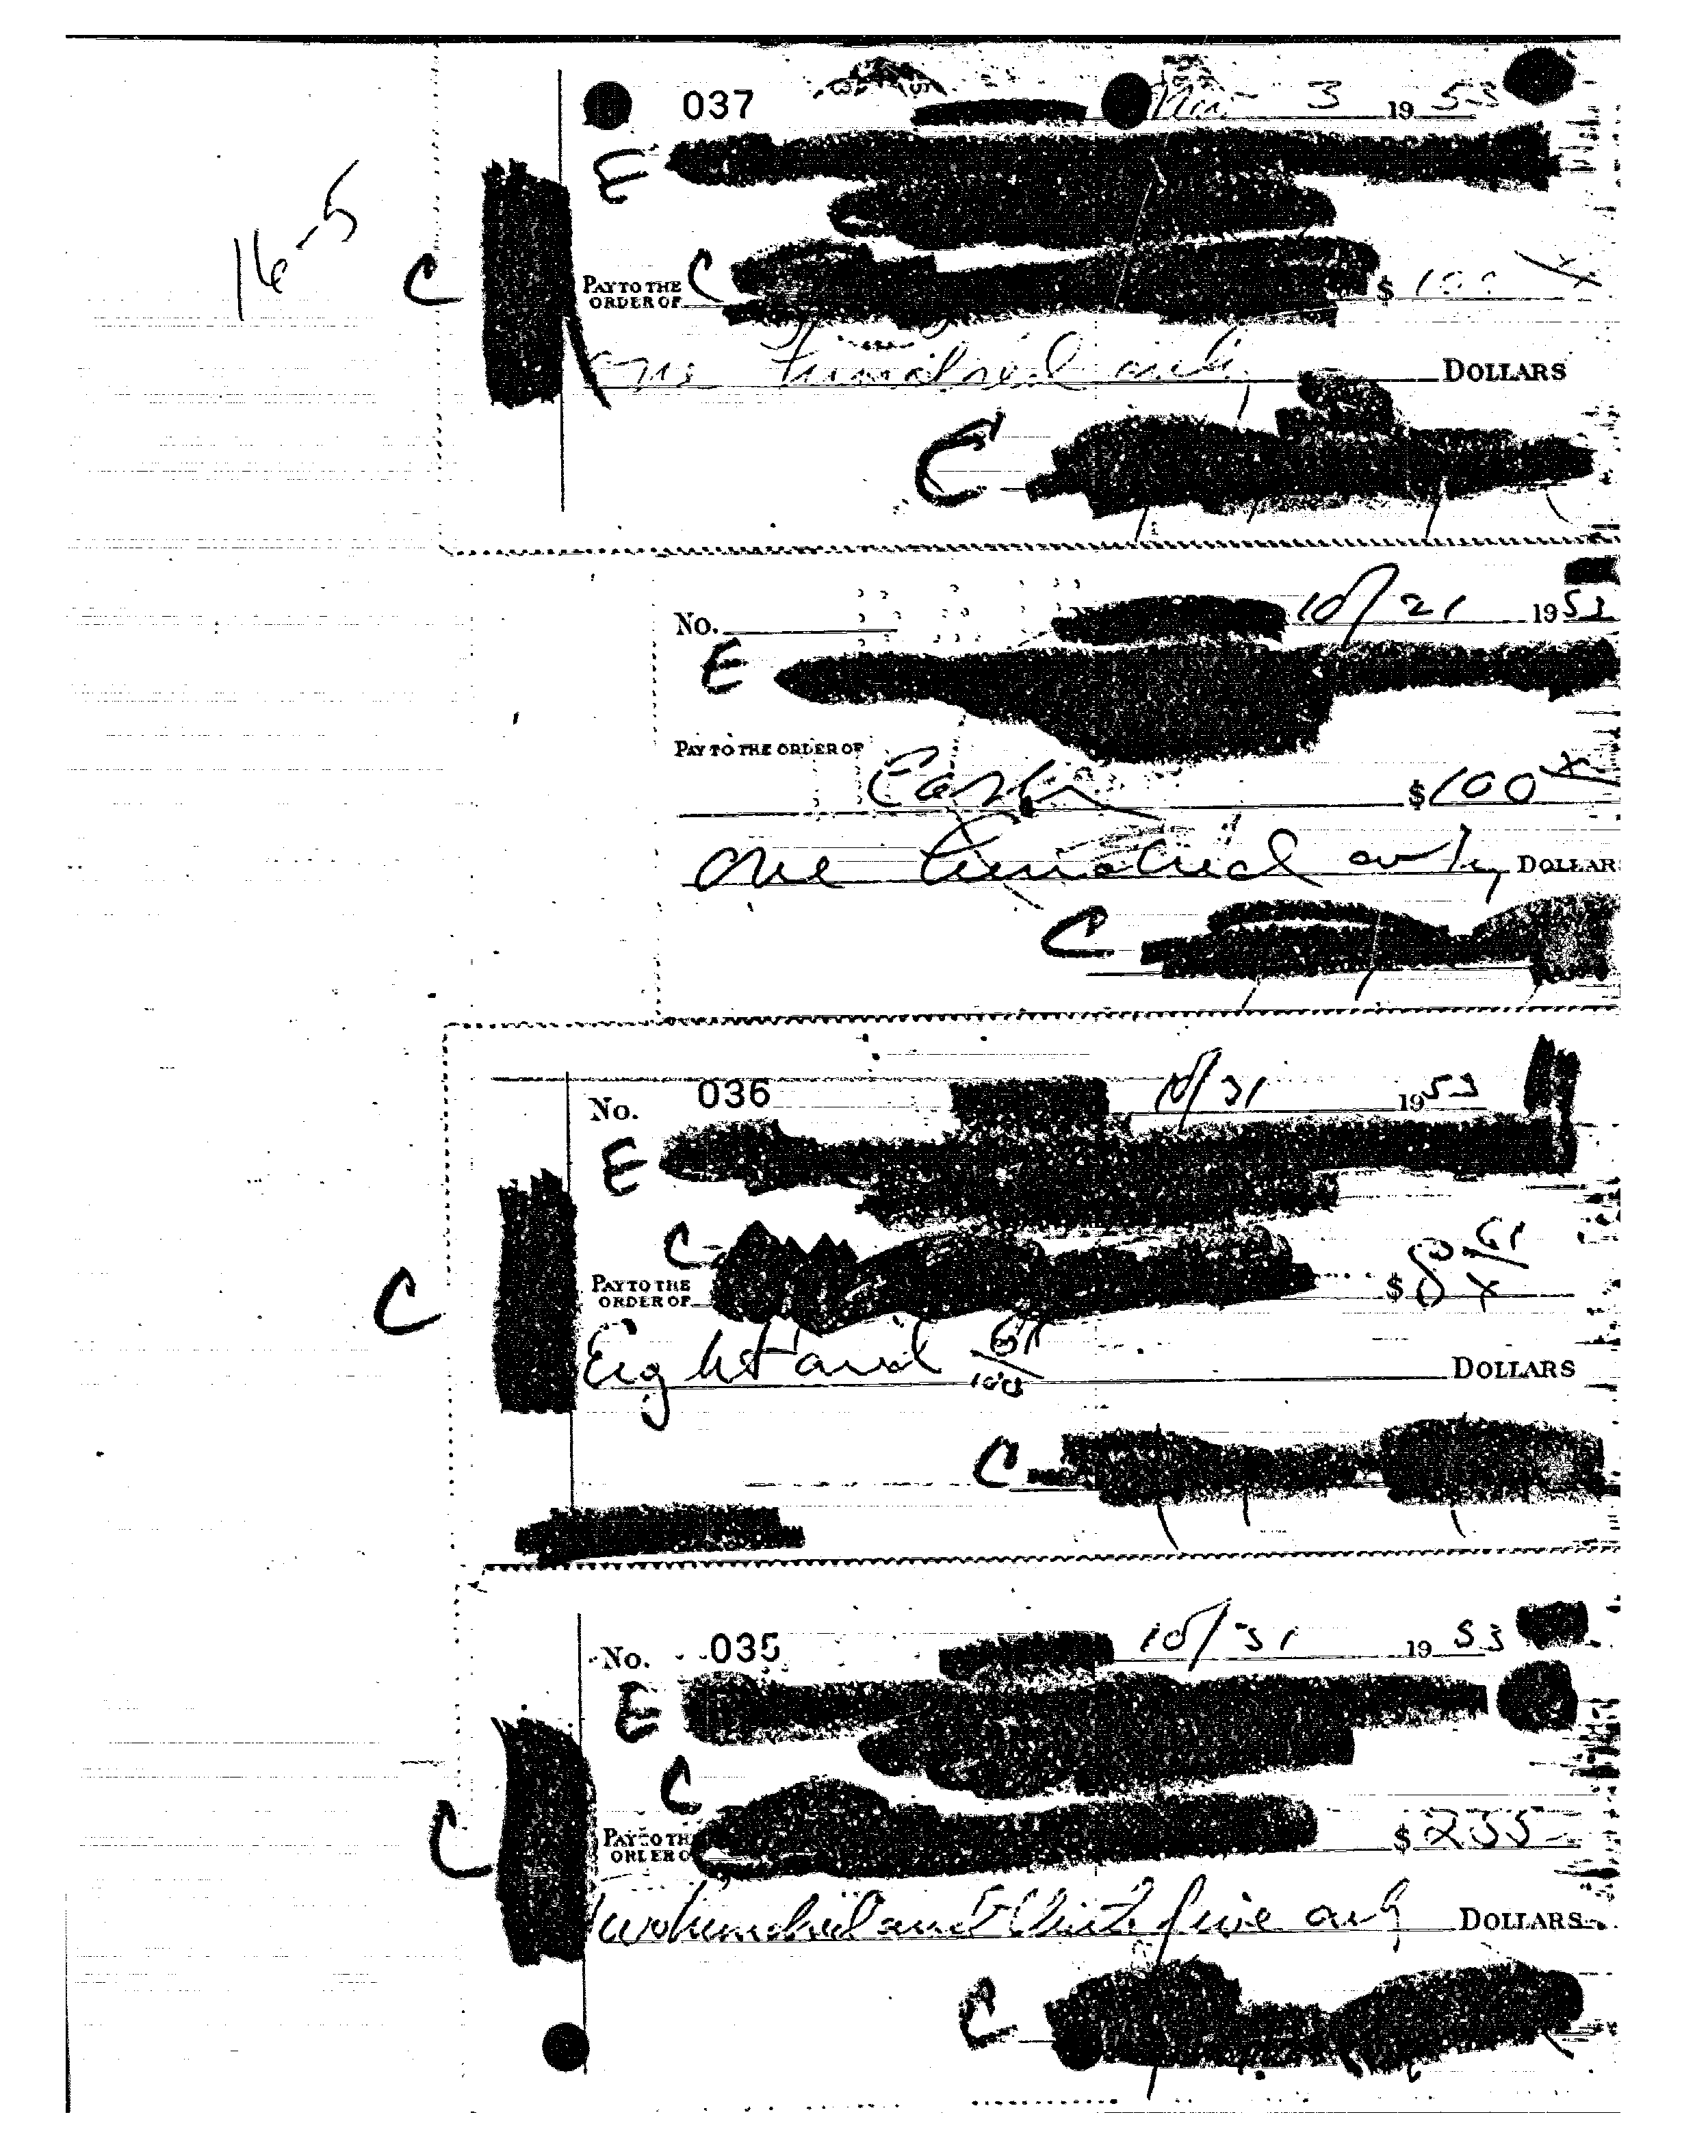 037 Nov - 3 19 53
E
16-5
C
PAY TO THE ORDER OF C $ 100 x
One hundred only DOLLARS
C
No. 10/21 1953
E
PAY TO THE ORDER OF
Cash $100 x
One hundred only DOLLAR
C
No. 036 10/31 1953
E
C
C PAY TO THE ORDER OF $ 8 61/x
Eight and 61/100 DOLLARS
C
No. 035 10/31 19 53
E
C
C PAY TO TH ORDER O $ 235
Two hundred and thirty five only DOLLARS
C